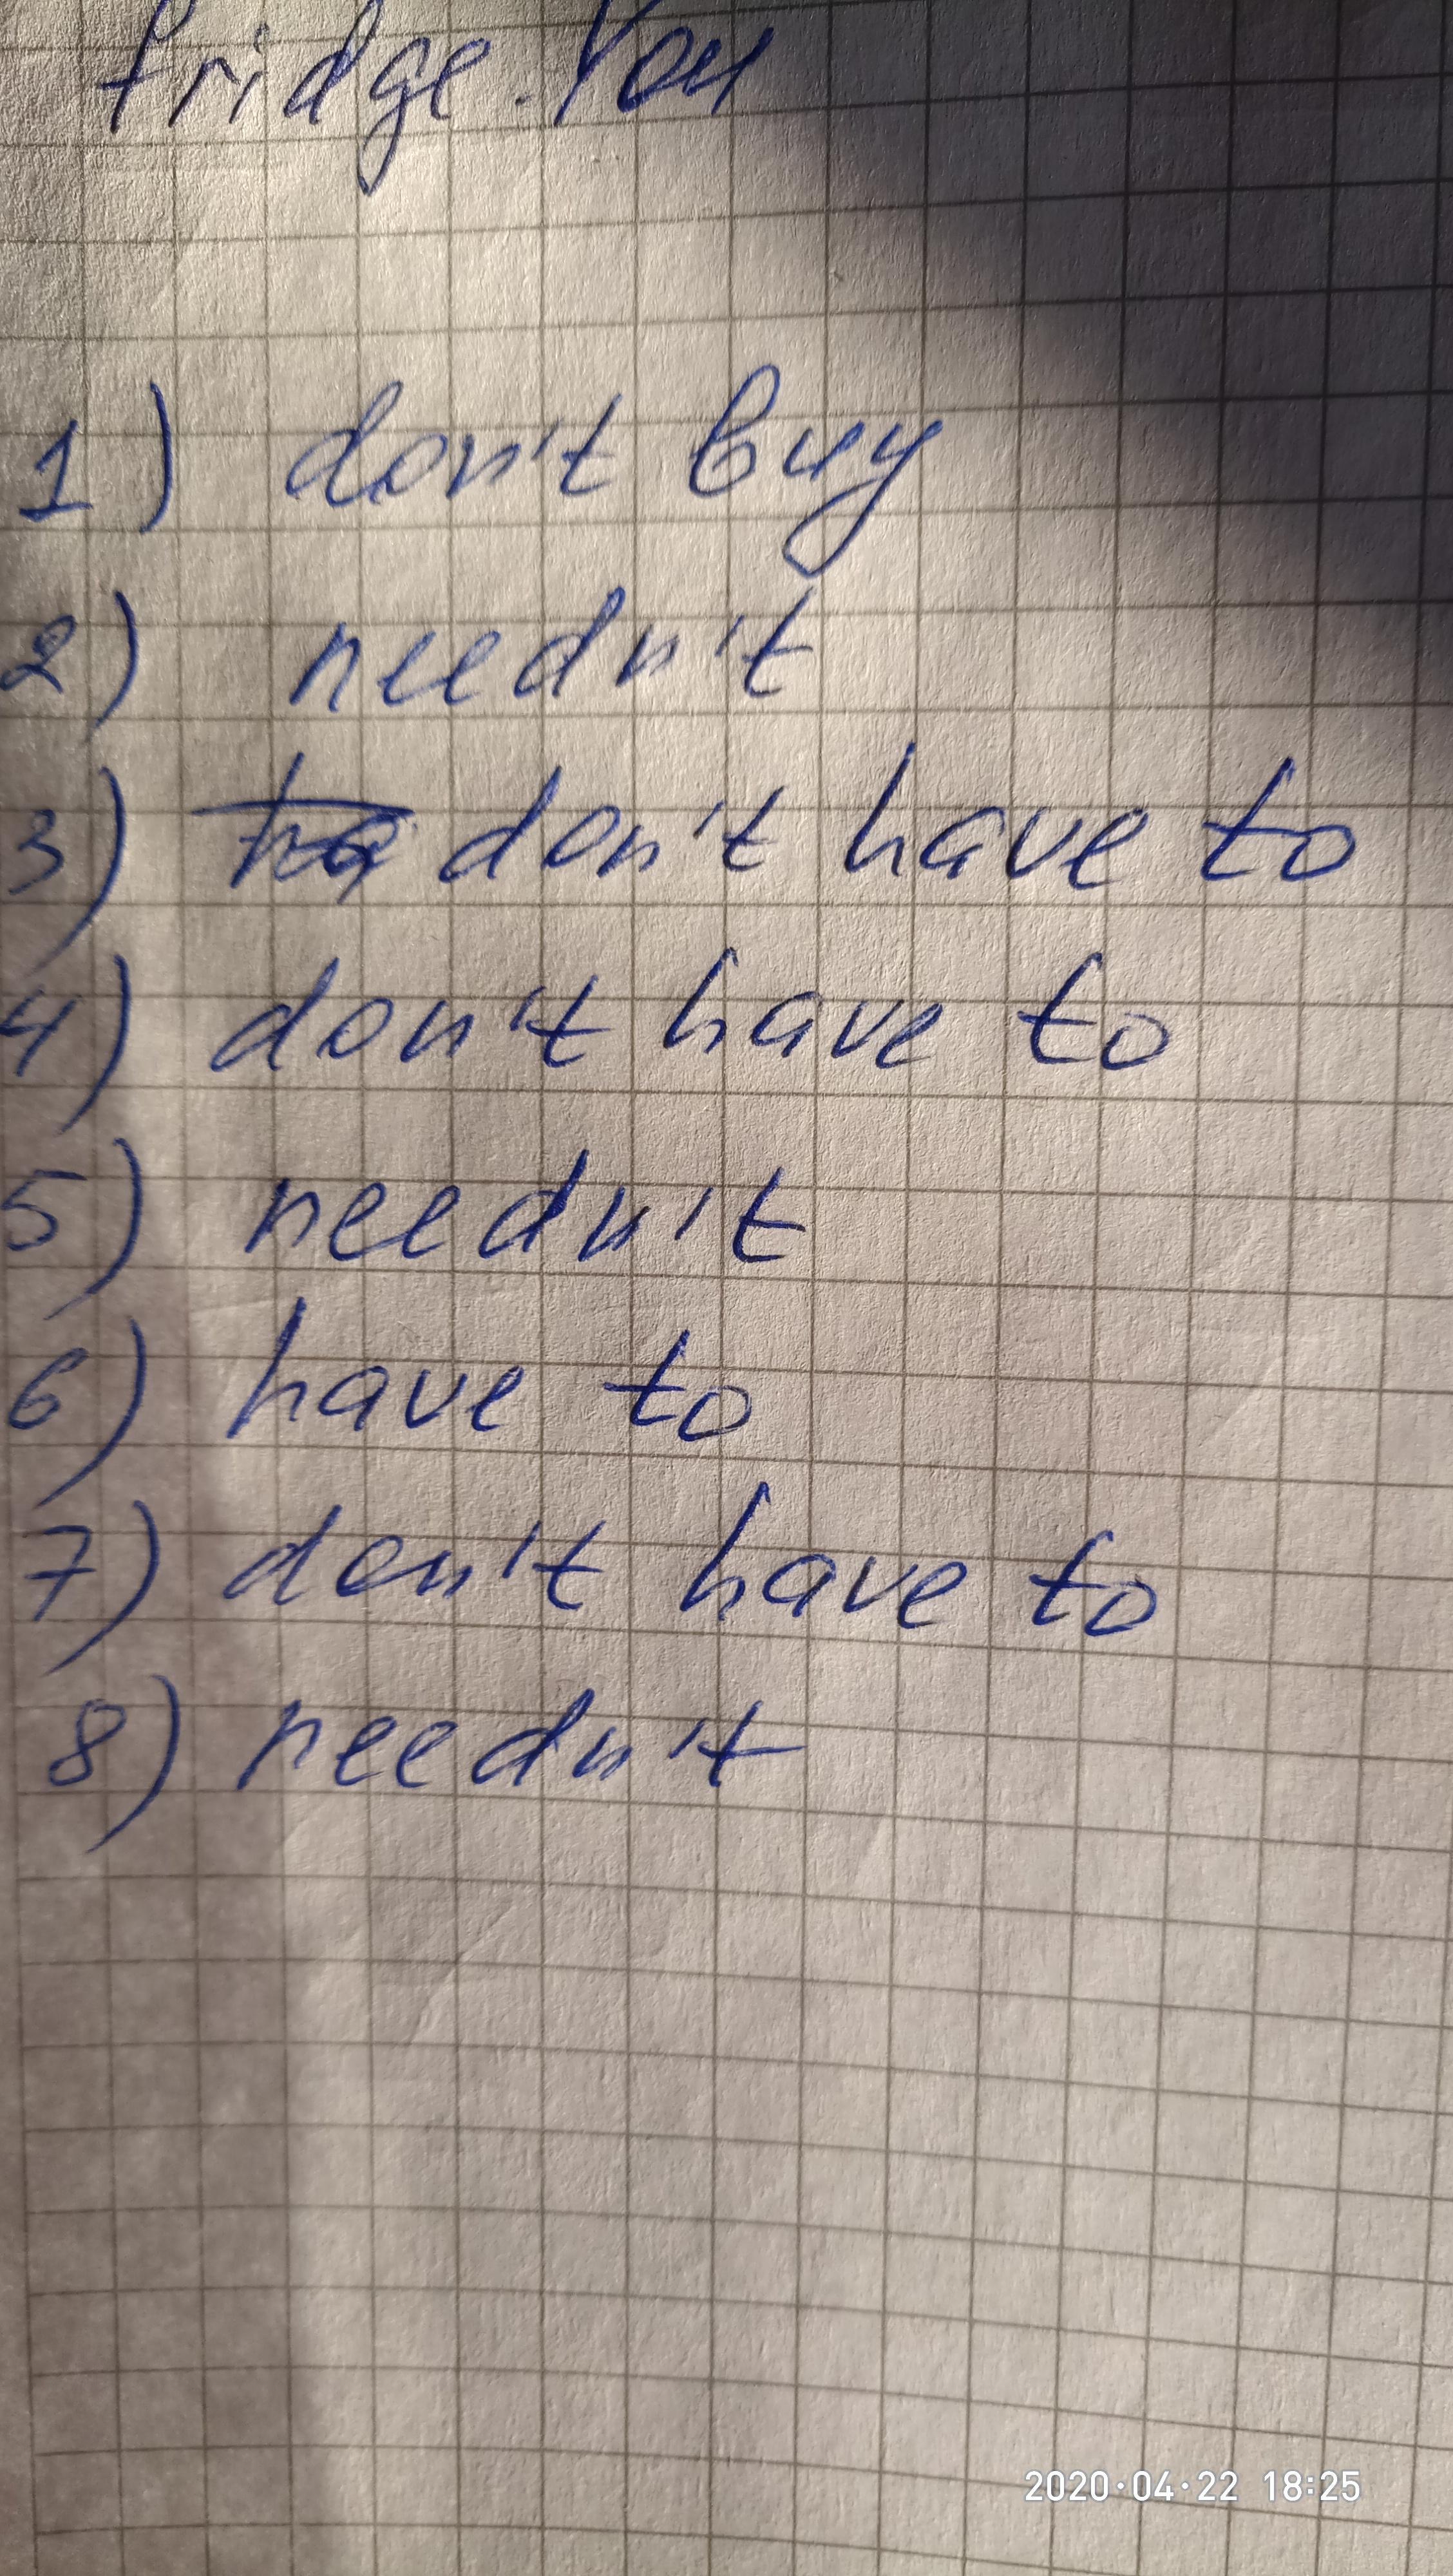 fridge. You
1) don't buy
2) needn't
3) don't have to
4) don't have to
5) needn't
6) have to
7) don't have to
8) needn't
2020.04.22 18:25